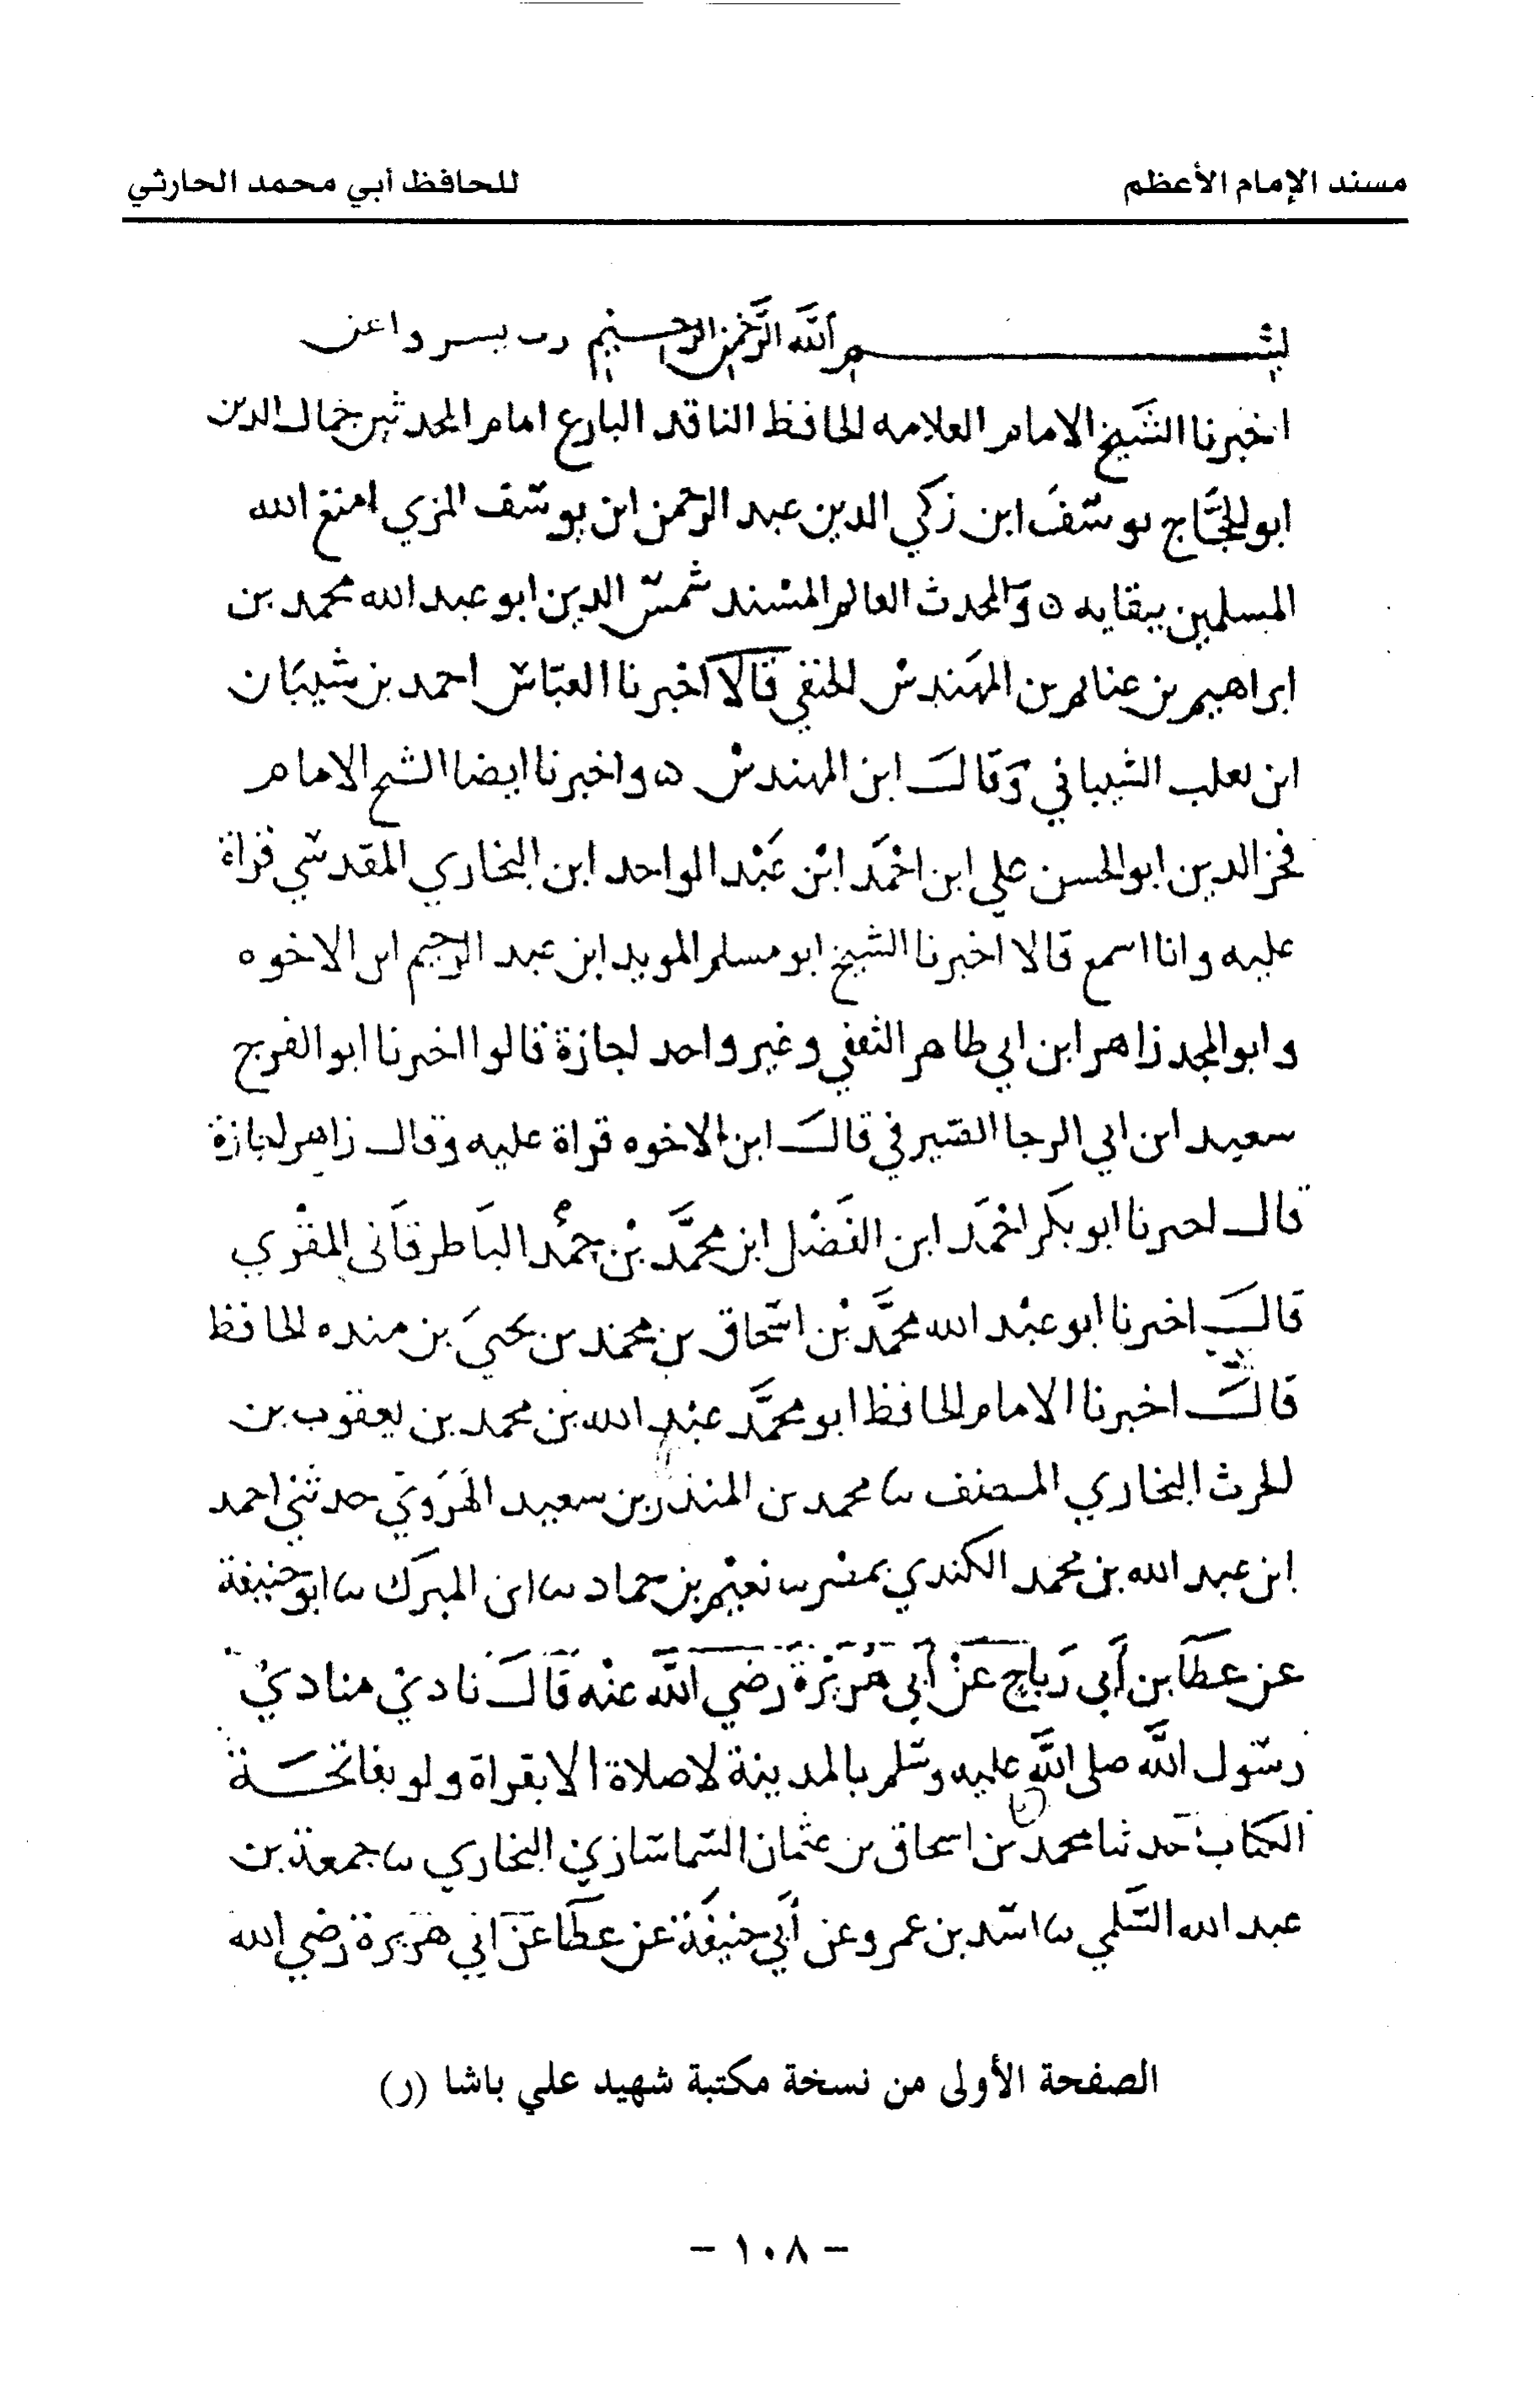 مسند الإمام الأعظم
للحافظ أبي محمد الحارثي
بسم الله الرحمن الرحيم رب يسر واعن
اخبرنا الشيخ الامام العلامه الحافظ الناقد البارع امام المحدثين جمال الدين
ابو الحجاج يوسف ابن زكي الدين عبد الرحمن ابن يوسف المزي امتع الله
المسلمين ببقايه ه والمحدث العالم المسند شمس الدين ابو عبد الله محمد بن
ابراهيم بن غنايم بن المهندس الحنفي قالا اخبرنا العباس احمد بن شيبان
ابن تعلب الشيباني وقال ابن المهندس ه واخبرنا ايضا الشيخ الامام
فخر الدين ابو الحسن علي ابن احمد ابن عبد الواحد ابن البخاري المقدسي قراة
عليه وانا اسمع قالا اخبرنا الشيخ ابو مسلم المويد ابن عبد الرحيم ابن الاخوه
وابو المجد زاهر ابن ابي طاهر الثقفي وغير واحد اجازة قالوا اخبرنا ابو الفرج
سعيد ابن ابي الرجا الصيرفي قال ابن الاخوه قراة عليه وقال زاهر اجازة
قال اخبرنا ابو بكر احمد ابن الفضل ابن محمد بن حمد الباطرقاني المقري
قال اخبرنا ابو عبد الله محمد بن اسحاق بن محمد بن يحيى بن منده الحافظ
قال اخبرنا الامام الحافظ ابو محمد عبد الله بن محمد بن يعقوب بن
الحرث البخاري المصنف ثنا محمد بن المنذر بن سعيد الهروي حدثني احمد
ابن عبد الله بن محمد الكندي بمصر ثنا نعيم بن حماد ثنا ابن المبرك ثنا ابو حنيفة
عن عطا بن أبي رباح عن أبي هريرة رضي الله عنه قال نادى منادي
رسول الله صلى الله عليه وسلم بالمدينة لا صلاة الا بقراة ولو بفاتحة
الكتاب حدثنا محمد بن اسحاق بن عثمان السماسازي البخاري ثنا جمعة بن
عبد الله السلمي ثنا اسد بن عمرو عن أبي حنيفة عن عطا عن ابي هريرة رضي الله
الصفحة الأولى من نسخة مكتبة شهيد علي باشا (ر)
- ١٠٨ -